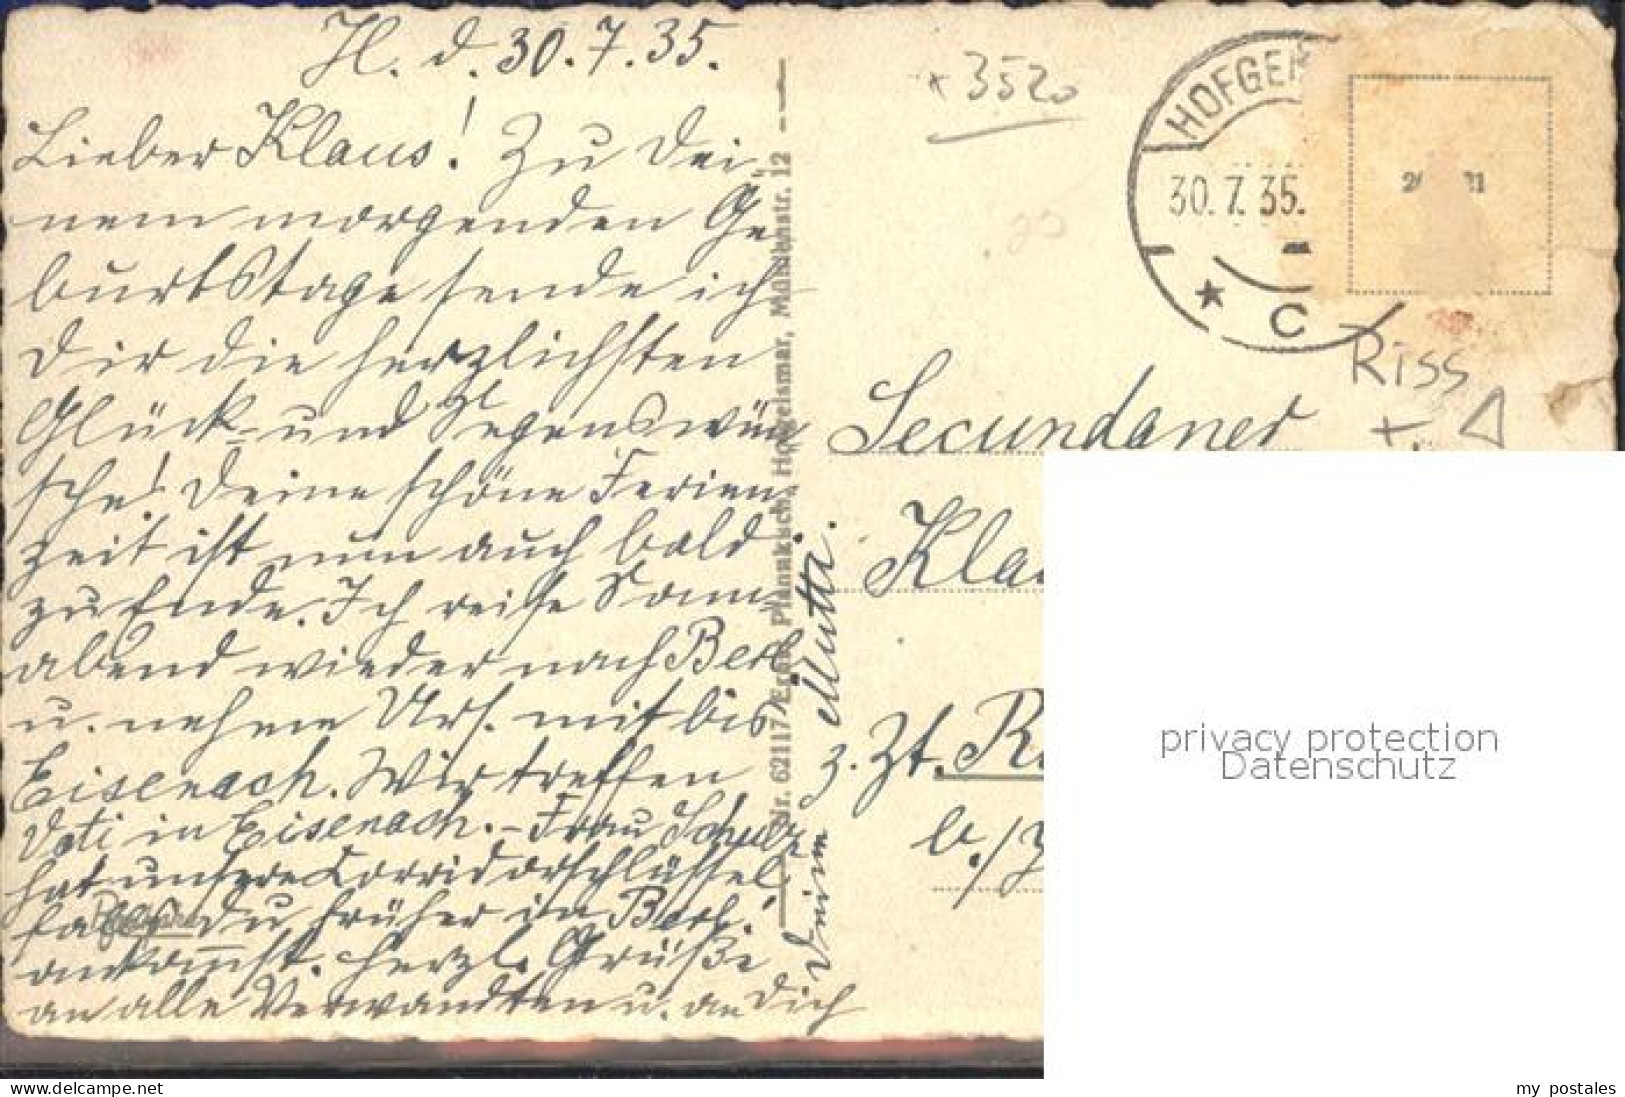 H. d. 30.7.35.
Lieber Klaus! Zu Dei-
nem morgenden Ge-
burtstage sende ich
Dir die herzlichsten
Glück- und Segenswün-
sche! Deine schöne Ferien-
zeit ist nun auch bald
zu Ende. Ich reise Sonn-
abend wieder nach Berl.
u. nehme Urs. mit bis
Eisenach. Wir treffen
Vati in Eisenach. – Frau Schulz
hat unsere Corridorschlüssel
falls Du früher in Berl.
ankommst. Herzl. Grüße
an alle Verwandten u. an Dich
Deine Mutti.
Nr. 62117 Hofgeismar, Mühlenstr. 12
*3520
HOFGEI
30.7.35.
* C
Riss
Secundaner
Kla
z. Zt.
b./
privacy protection
Datenschutz
© www.delcampe.net
my_postales